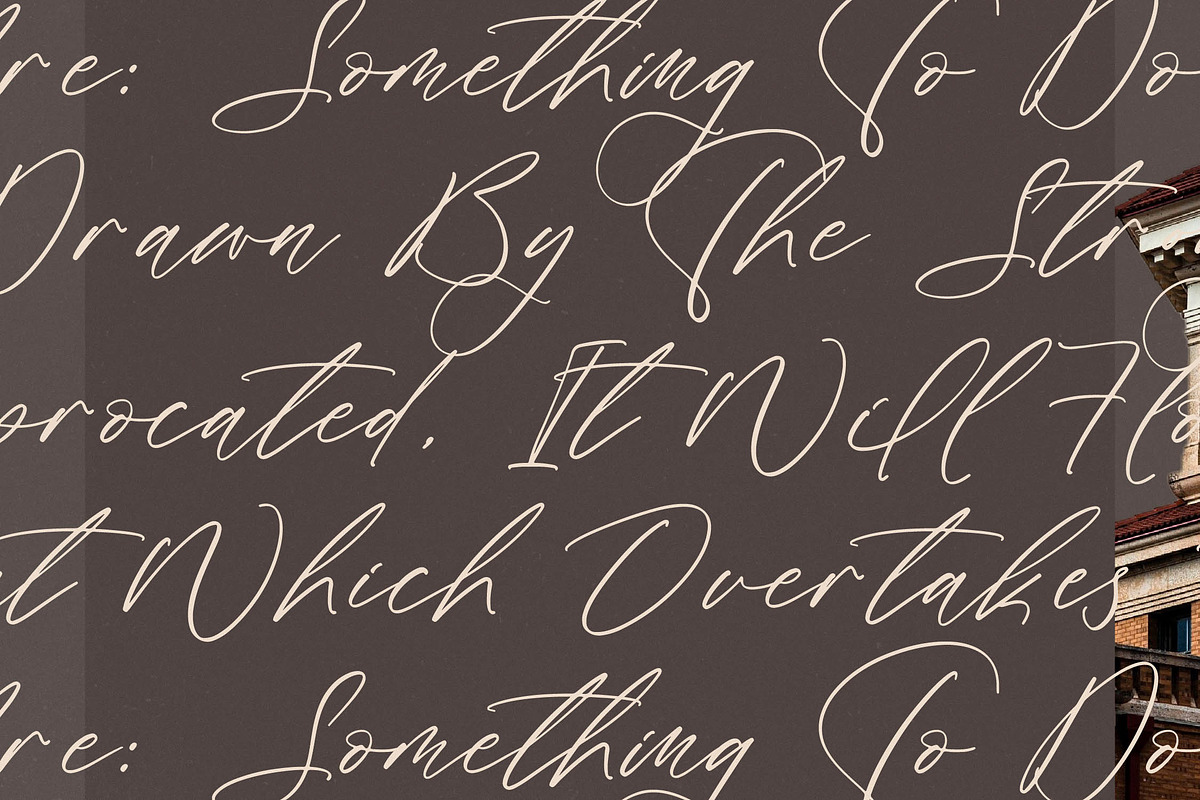 re: Something To Do
Drawn By The Str
procated. It Will Fl
t Which Overtakes
re: Something To Do